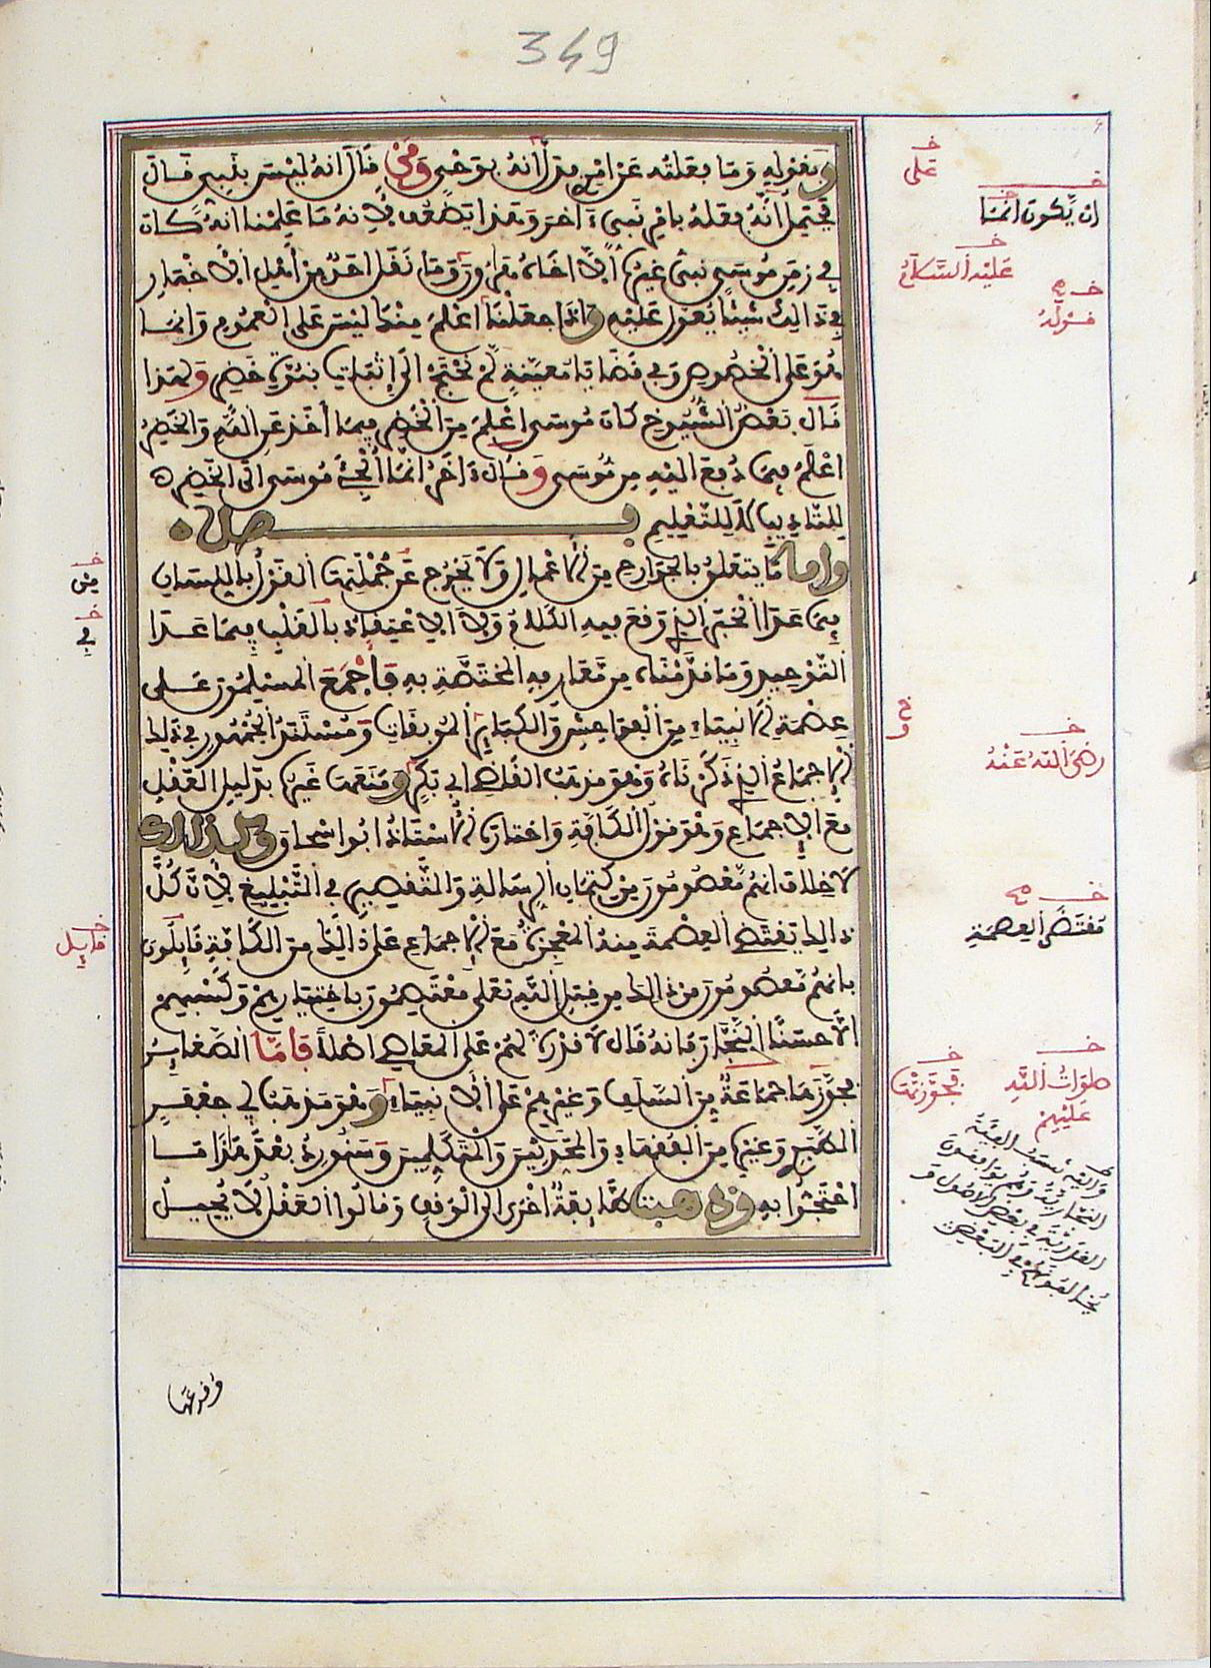 349
وبقوله وما فعلته عن امرى يدل انه بوحى ومن قال انه ليس بنبى قال
يحتمل انه فعله بامر نبى ءاخر وهذا يضعف لانه ما علمنا انه كان
فى زمن موسى نبى غيره الا اخاه هارون وما نقل احد من اهل الاخبار
فى ذالك شيئا يعول عليه واذا جعلنا اعلم منك ليس على العموم وانما
هو على الخصوص وفى قضايا معينة لم نحتج الى اثبات نبوة خضر ولهذا
قال بعض الشيوخ كان موسى اعلم من الخضر فيما اخذ عن الله والخضر
اعلم فيما دفع اليه من موسى وقال ءاخر انما الجئ موسى الى الخضر
للتاديب لا للتعليم فصل
واما ما يتعلق بالجوارح من الاعمال ولا يخرج عن جملتها القول باللسان
فيما عدا الخبر الذى وقع فيه الكلام ولا الاعتقاد بالقلب فيما عدا
التوحيد وما قدمناه من معارفه المختصة به فاجمع المسلمون على
عصمة الانبياء من الفواحش والكبائر الموبقات ومستند الجمهور فى ذلك
الاجماع الذى ذكرناه وهو مذهب القاضى ابى بكر ومنعها غيره بدليل العقل
مع الاجماع وهو قول الكافة واختاره الاستاذ ابو اسحاق وكذلك
لا خلاف انهم معصومون من كتمان الرسالة والتقصير فى التبليغ لان كل
ذالك تقتضى العصمة منه المعجزة مع الاجماع على ذالك من الكافة قايلون
بانهم معصومون من ذالك من قبل الله تعلى معتصمون باختيارهم وكسبهم
الا حسينا النجار فانه قال لا قدرة لهم على المعاصى اصلا فاما الصغاير
فجوزها جماعة من السلف وغيرهم على الانبياء وهو مذهب ابى جعفر
الطبرى وغيره من الفقهاء والمحدثين والمتكلمين وسنورد بعد هذا ما
احتجوا به وذهبت طايفة اخرى الى الوقف وقالوا العقل لا يحيل
خ
على
خ
ان يكون انما
خ
عليه السلام
خ صح
قوله
خ
من
خ
فى
خ
رضى الله عنه
خ صح
مقتضى العصمة
خ
قايل
خ
فجوزتها
خ
صلوات الله
عليهم
وقوعها